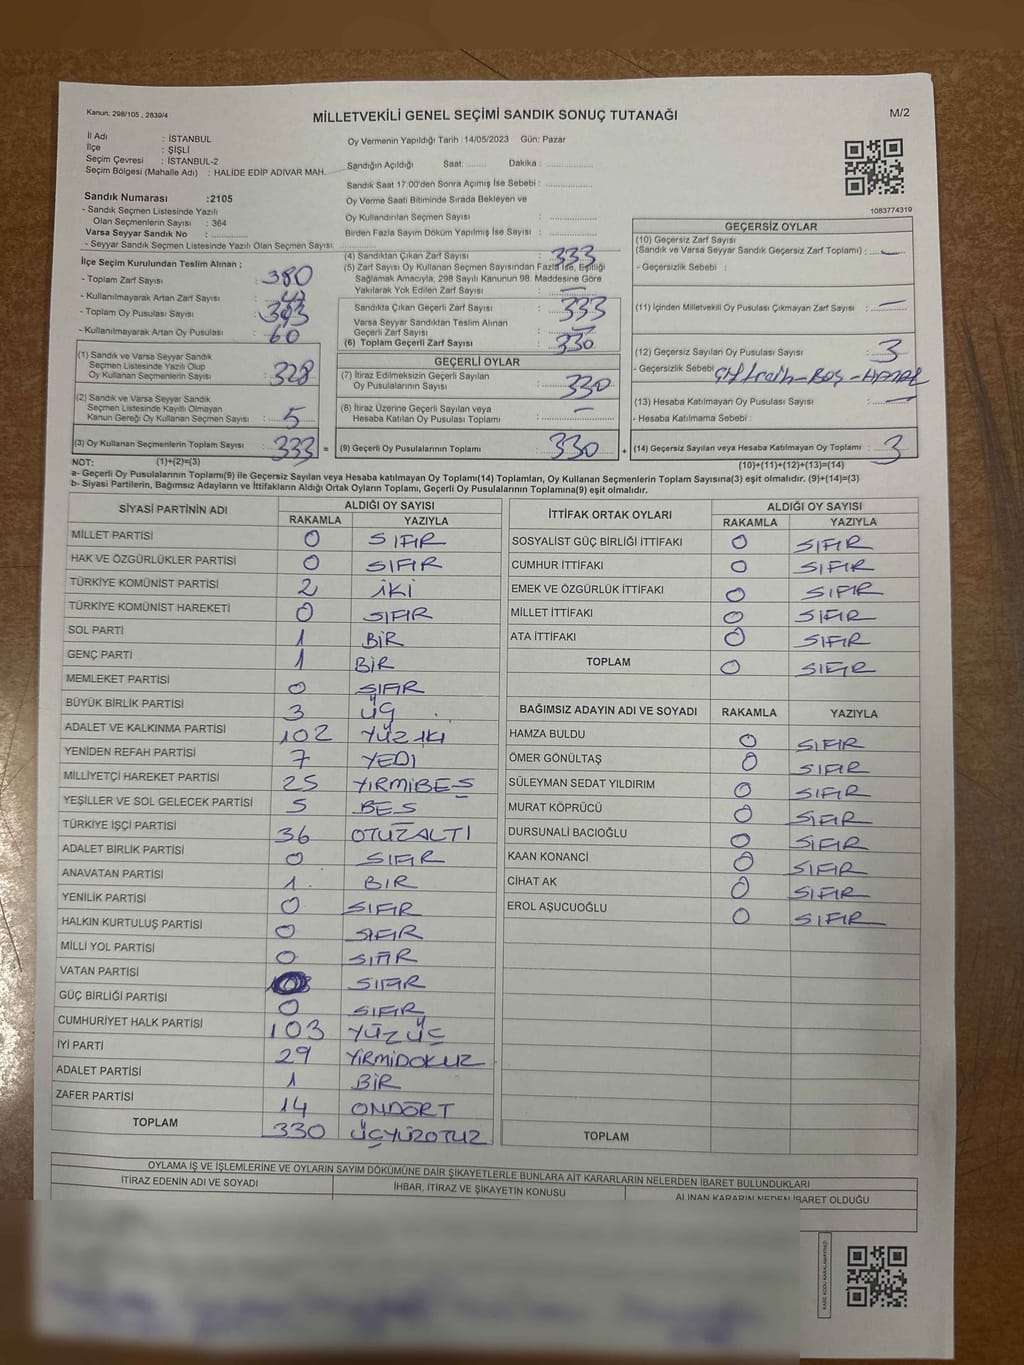 Kanun: 298/105 , 2839/4
MİLLETVEKİLİ GENEL SEÇİMİ SANDIK SONUÇ TUTANAĞI
M/2
İl Adı : İSTANBUL
İlçe : ŞİŞLİ
Seçim Çevresi : İSTANBUL-2
Seçim Bölgesi (Mahalle Adı) : HALİDE EDİP ADIVAR MAH.
Oy Vermenin Yapıldığı Tarih :14/05/2023 Gün: Pazar
Sandığın Açıldığı Saat: ........ Dakika : ....................
Sandık Saat 17:00'den Sonra Açımış İse Sebebi : ....................
Oy Verme Saati Bitiminde Sırada Bekleyen ve
Oy Kullandırılan Seçmen Sayısı : ....................
Birden Fazla Sayım Döküm Yapılmış İse Sayısı : ....................
1083774319
Sandık Numarası :2105
- Sandık Seçmen Listesinde Yazılı
Olan Seçmenlerin Sayısı : 364
Varsa Seyyar Sandık No : ....................
- Seyyar Sandık Seçmen Listesinde Yazılı Olan Seçmen Sayısı: ....................
İlçe Seçim Kurulundan Teslim Alınan ;
- Toplam Zarf Sayısı : 380
- Kullanılmayarak Artan Zarf Sayısı : 47
- Toplam Oy Pusulası Sayısı :
- Kullanılmayarak Artan Oy Pusulası : 60
(1) Sandık ve Varsa Seyyar Sandık
Seçmen Listesinde Yazılı Olup
Oy Kullanan Seçmenlerin Sayısı : 328
(2) Sandık ve Varsa Seyyar Sandık
Seçmen Listesinde Kayıtlı Olmayan
Kanun Gereği Oy Kullanan Seçmen Sayısı : 5
(3) Oy Kullanan Seçmenlerin Toplam Sayısı : 333 =
(4) Sandıktan Çıkan Zarf Sayısı : 333
(5) Zarf Sayısı Oy Kullanan Seçmen Sayısından Fazla İse, Eşitliği
Sağlamak Amacıyla, 298 Sayılı Kanunun 98. Maddesine Göre
Yakılarak Yok Edilen Zarf Sayısı : —
Sandıkta Çıkan Geçerli Zarf Sayısı : 333
Varsa Seyyar Sandıktan Teslim Alınan
Geçerli Zarf Sayısı : —
(6) Toplam Geçerli Zarf Sayısı : 330
GEÇERLİ OYLAR
(7) İtiraz Edilmeksizin Geçerli Sayılan
Oy Pusulalarının Sayısı : 330
(8) İtiraz Üzerine Geçerli Sayılan veya
Hesaba Katılan Oy Pusulası Toplamı : —
(9) Geçerli Oy Pusulalarının Toplamı : 330 +
GEÇERSİZ OYLAR
(10) Geçersiz Zarf Sayısı
(Sandık ve Varsa Seyyar Sandık Geçersiz Zarf Toplamı) : —
- Geçersizlik Sebebi :
(11) İçinden Milletvekili Oy Pusulası Çıkmayan Zarf Sayısı : —
(12) Geçersiz Sayılan Oy Pusulası Sayısı : 3
- Geçersizlik Sebebi BOŞ
(13) Hesaba Katılmayan Oy Pusulası Sayısı : —
- Hesaba Katılmama Sebebi :
(14) Geçersiz Sayılan veya Hesaba Katılmayan Oy Toplamı : 3
NOT: (1)+(2)=(3)
(10)+(11)+(12)+(13)=(14)
a- Geçerli Oy Pusulalarının Toplamı(9) ile Geçersiz Sayılan veya Hesaba katılmayan Oy Toplamı(14) Toplamları, Oy Kullanan Seçmenlerin Toplam Sayısına(3) eşit olmalıdır. (9)+(14)=(3)
b- Siyasi Partilerin, Bağımsız Adayların ve İttifakların Aldığı Oyların Toplamı, Geçerli Oy Pusulalarının Toplamına(9) eşit olmalıdır.
SİYASİ PARTİNİN ADI ALDIĞI OY SAYISI
RAKAMLA YAZIYLA
MİLLET PARTİSİ 0 SIFIR
HAK VE ÖZGÜRLÜKLER PARTİSİ 0 SIFIR
TÜRKİYE KOMÜNİST PARTİSİ 2 İKİ
TÜRKİYE KOMÜNİST HAREKETİ 0 SIFIR
SOL PARTİ 1 BİR
GENÇ PARTİ 1 BİR
MEMLEKET PARTİSİ 0 SIFIR
BÜYÜK BİRLİK PARTİSİ 3 ÜÇ
ADALET VE KALKINMA PARTİSİ 102 YÜZ İKİ
YENİDEN REFAH PARTİSİ 7 YEDİ
MİLLİYETÇİ HAREKET PARTİSİ 25 YİRMİBEŞ
YEŞİLLER VE SOL GELECEK PARTİSİ 5 BEŞ
TÜRKİYE İŞÇİ PARTİSİ 36 OTUZALTI
ADALET BİRLİK PARTİSİ 0 SIFIR
ANAVATAN PARTİSİ 1 BİR
YENİLİK PARTİSİ 0 SIFIR
HALKIN KURTULUŞ PARTİSİ 0 SIFIR
MİLLİ YOL PARTİSİ 0 SIFIR
VATAN PARTİSİ SIFIR
GÜÇ BİRLİĞİ PARTİSİ 0 SIFIR
CUMHURİYET HALK PARTİSİ 103 YÜZÜÇ
İYİ PARTİ 29 YİRMİDOKUZ
ADALET PARTİSİ 1 BİR
ZAFER PARTİSİ 14 ONDÖRT
TOPLAM 330 ÜÇYÜZOTUZ
İTTİFAK ORTAK OYLARI ALDIĞI OY SAYISI
RAKAMLA YAZIYLA
SOSYALİST GÜÇ BİRLİĞİ İTTİFAKI 0 SIFIR
CUMHUR İTTİFAKI 0 SIFIR
EMEK VE ÖZGÜRLÜK İTTİFAKI 0 SIFIR
MİLLET İTTİFAKI 0 SIFIR
ATA İTTİFAKI 0 SIFIR
TOPLAM 0 SIFIR
BAĞIMSIZ ADAYIN ADI VE SOYADI RAKAMLA YAZIYLA
HAMZA BULDU 0 SIFIR
ÖMER GÖNÜLTAŞ 0 SIFIR
SÜLEYMAN SEDAT YILDIRIM 0 SIFIR
MURAT KÖPRÜCÜ 0 SIFIR
DURSUNALİ BACIOĞLU 0 SIFIR
KAAN KONANCİ 0 SIFIR
CİHAT AK 0 SIFIR
EROL AŞUCUOĞLU 0 SIFIR
TOPLAM
OYLAMA İŞ VE İŞLEMLERİNE VE OYLARIN SAYIM DÖKÜMÜNE DAİR ŞİKAYETLERLE BUNLARA AİT KARARLARIN NELERDEN İBARET BULUNDUKLARI
İTİRAZ EDENİN ADI VE SOYADI
İHBAR, İTİRAZ VE ŞİKAYETİN KONUSU
ALINAN KARARIN NEDEN İBARET OLDUĞU